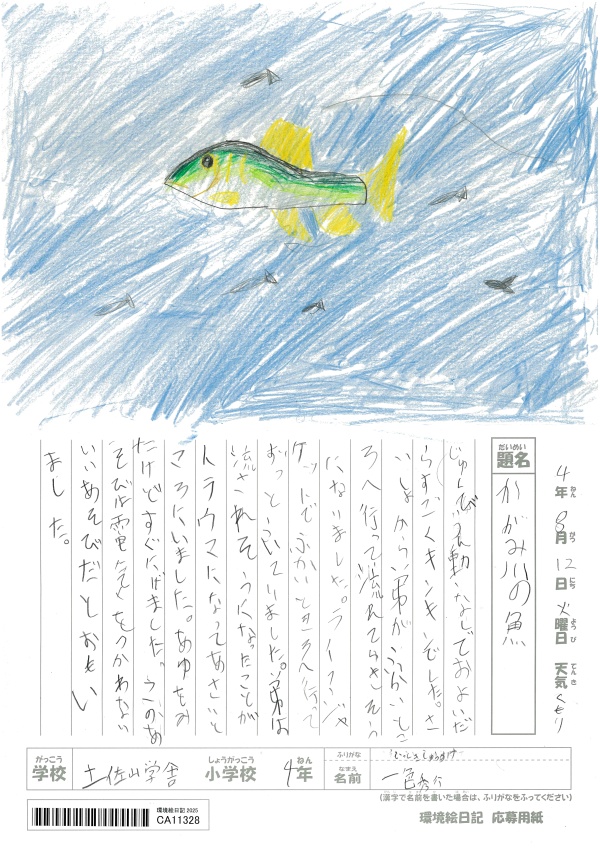 4年 8月 12日 火曜日 天気 くもり
ねん がつ にち ようび てんき
だいめい
題名
かがみ川の魚
じゅんび運動なしでおよいだ
らすごくキンキンでした。さ
いしょから弟がふかいとこ
ろへ行って流れてらきそう
になりました。ライフジャ
ケットでふかいところへ行って
ずっとういていました。弟は
流されそうになったことが
トラウマになってあさいと
ころにいました。あゆをみ
たけどすぐにげました。うこのあ
そびは電気をつかわない
いいあそびだとおもい
ました。
がっこう
学校
土佐山学舎
しょうがっこう
小学校
4年
ねん
ふりがな
なまえ
名前
一色秀
(漢字で名前を書いた場合は、ふりがなをふってください)
環境絵日記 2025
CA11328
環境絵日記 応募用紙